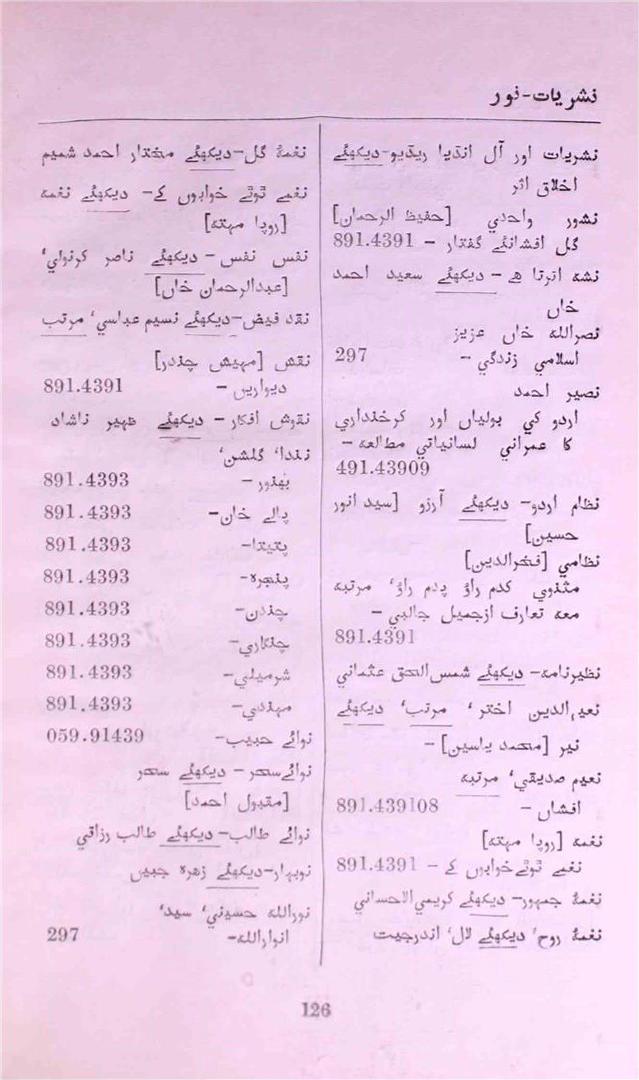 نشریات-نور
نشریات اور آل انڈیا ریڈیو-دیکھئے
اخلاق اثر
نشور واحدي [حفیظ الرحمان]
گل افشانئے گفتار - 891.4391
نشہ اترتا ھے - دیکھئے سعید احمد
خاں
نصراللہ خاں عزیز
اسلامي زندگي - 297
نصیر احمد
اردو کي بولیاں اور کرخنداري
کا عمراني لسانیاتي مطالعہ -
491.43909
نظام اردو- دیکھئے آرزو [سید انور
حسین]
نظامي [فخرالدین]
مثنوي کدم راؤ پدم راؤ' مرتبہ
معہ تعارف ازجمیل جالبي -
891.4391
نظیرنامہ- دیکھئے شمس الحق عثماني
نعیم الدین اختر' مرتب' دیکھئے
نیر [محمد یاسین] -
نعیم صدیقي' مرتبہ
افشاں - 891.439108
نغمہ [روپا مہتہ]
نغمے ٹوٹے خوابوں کے - 891.4391
نغمۂ جمہور- دیکھئے کریمي الاحساني
نغمۂ روح' دیکھئے لال' اندرجیت
نغمۂ گل-دیکھئے مختار احمد شمیم
نغمے ٹوٹے خوابوں کے- دیکھئے نغمہ
[روپا مہتہ]
نفس نفس - دیکھئے ناصر کرنولي'
[عبدالرحمان خاں]
نقد فیض-دیکھئے نسیم عباسي' مرتب
نقش [مہیش چندر]
دیواریں - 891.4391
نقوش افکار - دیکھئے ظہیر ناشاد
نندا' گلشن'
بھنور - 891.4393
پالے خان- 891.4393
پتیتا- 891.4393
پنجرہ- 891.4393
چندن- 891.4393
چنگاري- 891.4393
شرمیلي- 891.4393
مہندي- 891.4393
نوائے حبیب- 059.91439
نوائےسحر - دیکھئے سحر
[مقبول احمد]
نوائے طالب- دیکھئے طالب رزاقي
نوبہار-دیکھئے زھرہ جبیں
نوراللہ حسیني' سید'
انواراللہ- 297
126